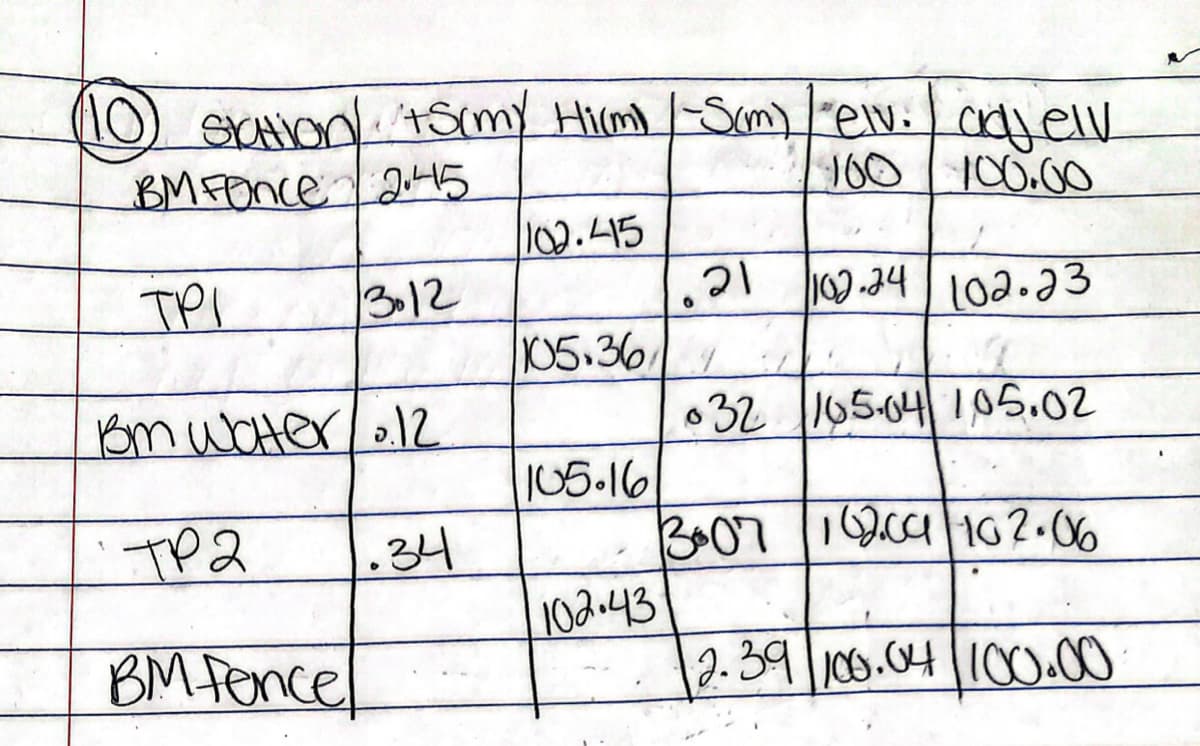 10 Station +S(m) Hi(m) -S(m) elv. adj elv
BM Fence 2.45 100 100.00
102.45
TP1 3.12 .21 102.24 102.23
105.36
Bm Water .12 .32 105.04 105.02
105.16
TP2 .34 3.07 102.09 102.06
102.43
BM Fence 2.39 100.04 100.00